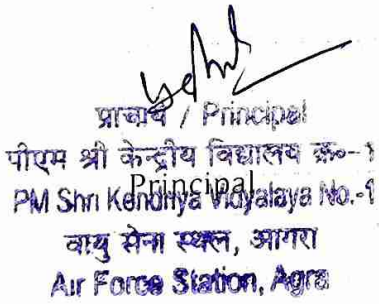 प्राचार्य / Principal
पीएम श्री केन्द्रीय विद्यालय क्र०-1
Principal
PM Shri Kendriya Vidyalaya No.-1
वायु सेना स्थल, आगरा
Air Force Station, Agra